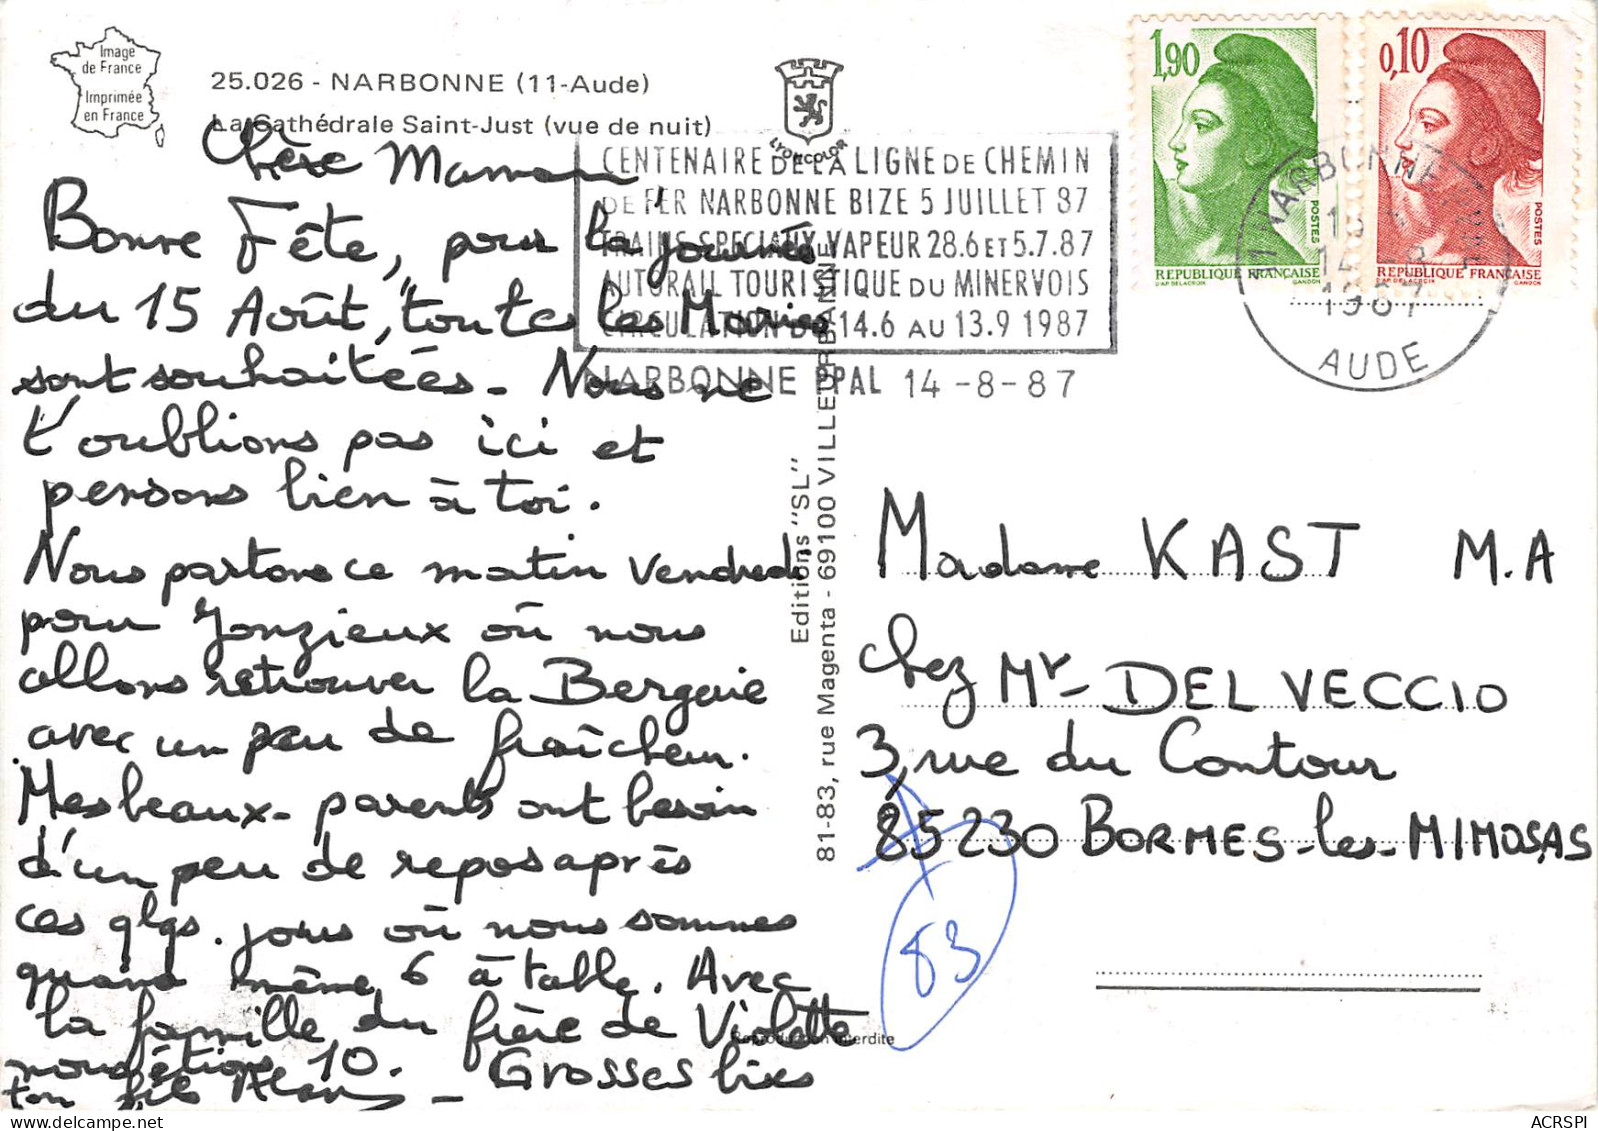 Image
de France
Imprimée
en France
25.026 - NARBONNE (11-Aude)
La Cathédrale Saint-Just (vue de nuit)
LYONCOLOR
Chère Maman,
Bonne Fête, pour la journée
du 15 Août, toutes les Maries
sont souhaitées - Nous ne
t'oublions pas ici et
pensons bien à toi.
Nous partons ce matin vendredi
pour Jonzieux où nous
allons retrouver la Bergerie
avec un peu de fraîcheur.
Mes beaux-parents ont besoin
d'un peu de repos après
ces qlqs. jours où nous sommes
quand même 6 à table. Avec
la famille du frère de Violette
nous étions 10. - Grosses bises
ton fils Alain -
CENTENAIRE DE LA LIGNE DE CHEMIN
DE FER NARBONNE BIZE 5 JUILLET 87
TRAINS SPECIAUX VAPEUR 28.6 ET 5.7.87
AUTORAIL TOURISTIQUE DU MINERVOIS
CIRCULATION DU 14.6 AU 13.9 1987
NARBONNE PPAL 14-8-87
Editions "SL"
81-83, rue Magenta - 69100 VILLEURBANNE
Reproduction interdite
1,90
POSTES
REPUBLIQUE FRANÇAISE
D'AP DELACROIX GANDON
0,10
POSTES
REPUBLIQUE FRANÇAISE
D'AP DELACROIX GANDON
NARBONNE
14-8
1987
AUDE
Madame KAST M.A
chez Mr - DEL VECCIO
3, rue du Contour
85230 BORMES-les-MIMOSAS
83
ACRSPI